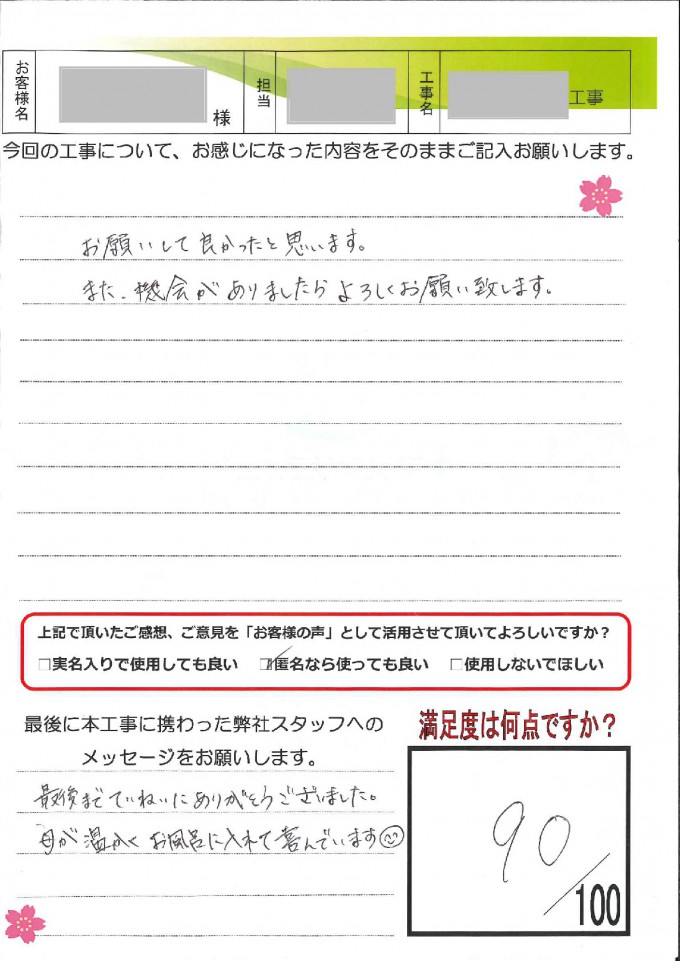 お客様名 様 担当 工事名 工事
今回の工事について、お感じになった内容をそのままご記入お願いします。
お願いして良かったと思います。
また、機会がありましたらよろしくお願い致します。
上記で頂いたご感想、ご意見を「お客様の声」として活用させて頂いてよろしいですか？
□実名入りで使用しても良い ☑匿名なら使っても良い □使用しないでほしい
最後に本工事に携わった弊社スタッフへの
メッセージをお願いします。
最後までていねいにありがとうございました。
母が温かくお風呂に入れて喜んでいます
満足度は何点ですか？
90/100